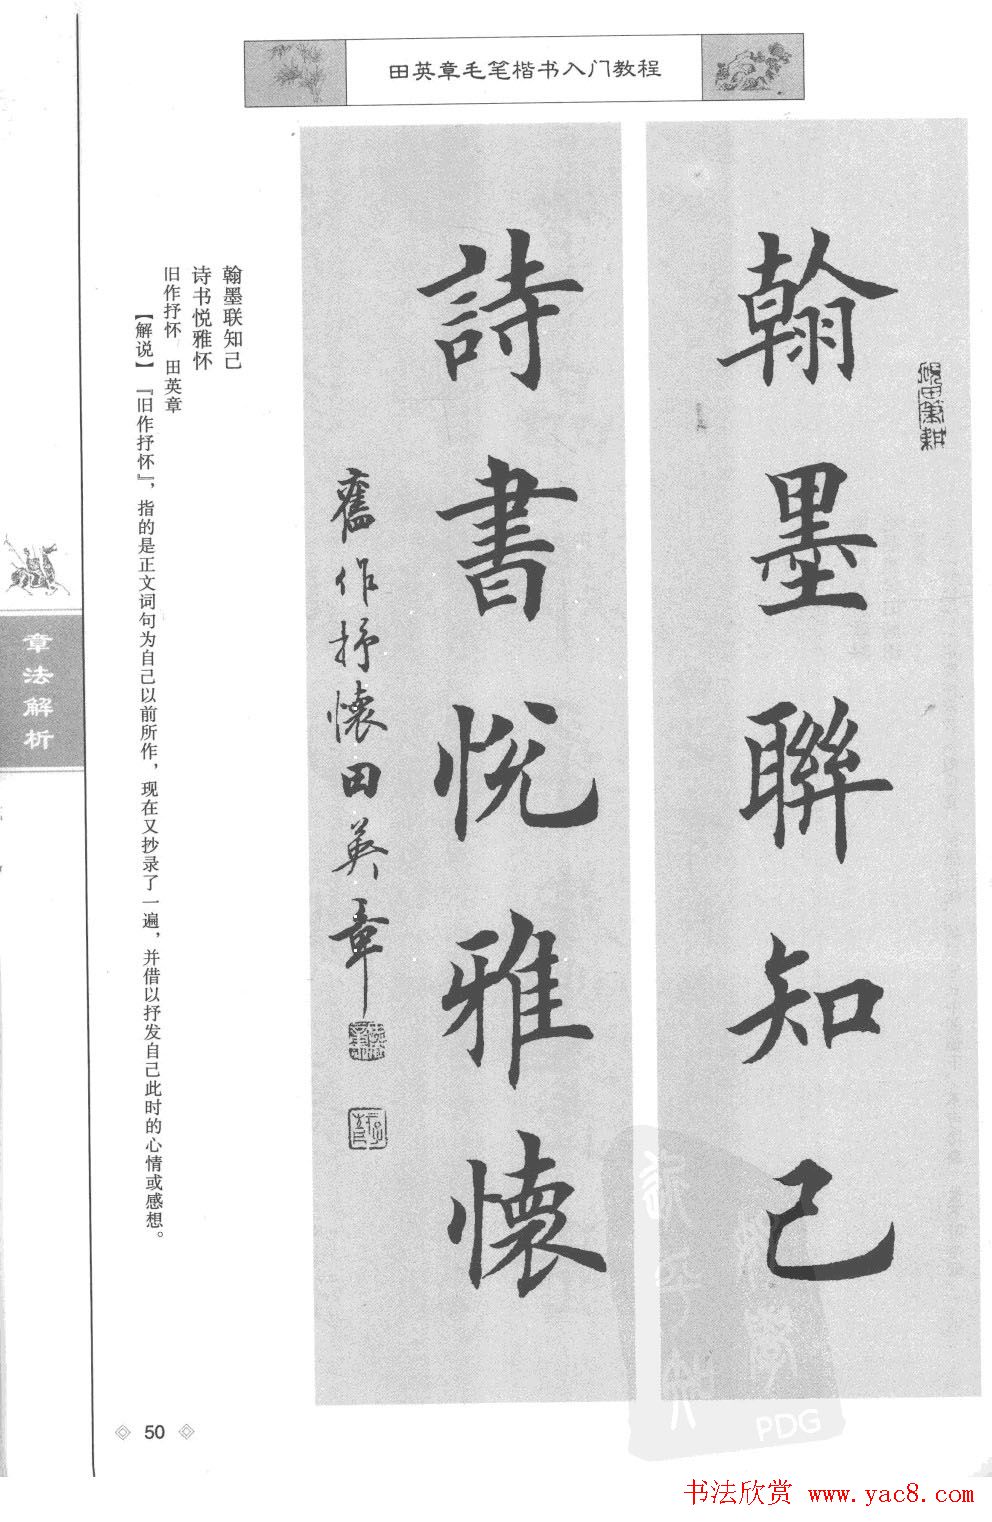 田英章毛笔楷书入门教程
翰墨聯知己
詩書悦雅懷
舊作抒懷田英章
翰墨联知己
诗书悦雅怀
旧作抒怀 田英章
【解说】『旧作抒怀』，指的是正文词句为自己以前所作，现在又抄录了一遍，并借以抒发自己此时的心情或感想。
章法解析
50
PDG
书法欣赏 www.yac8.com